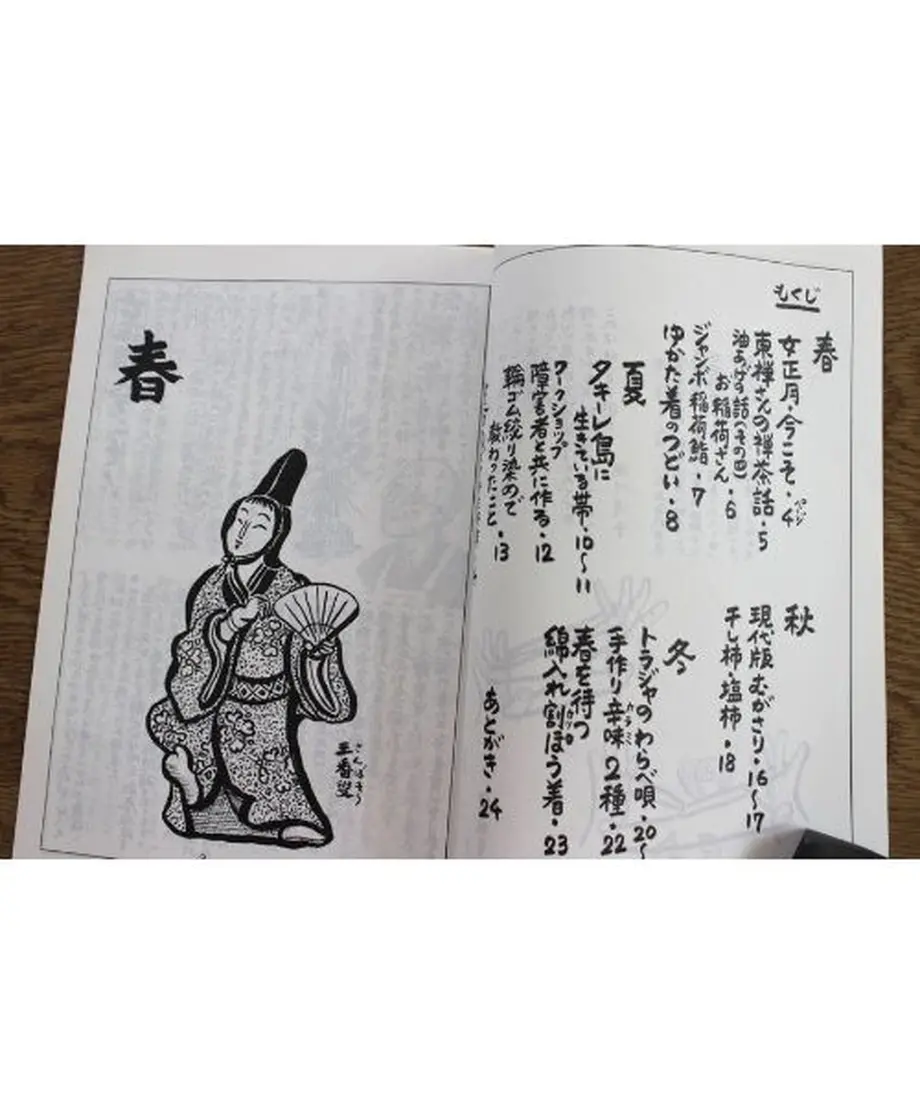 もくじ
春
女正月・今こそ・4ページ
東禅さんの禅茶話・5
油あげ話(その四)
お稲荷さん・6
ジャンボ稲荷鮨・7
ゆかた着のつどい・8
夏
タキーレ島に
生きている帯・10〜11
ワークショップ
障害者と共に作る・12
輪ゴム絞り染めで
教わったこと・13
秋
現代版むがさり・16〜17
干し柿・塩柿・18
冬
トラジャのわらべ唄・20〜
手作り辛味2種・22
カラミ
春を待つ
綿入れ割ぽう着・23
カッ
あとがき・24
春
さんばそう